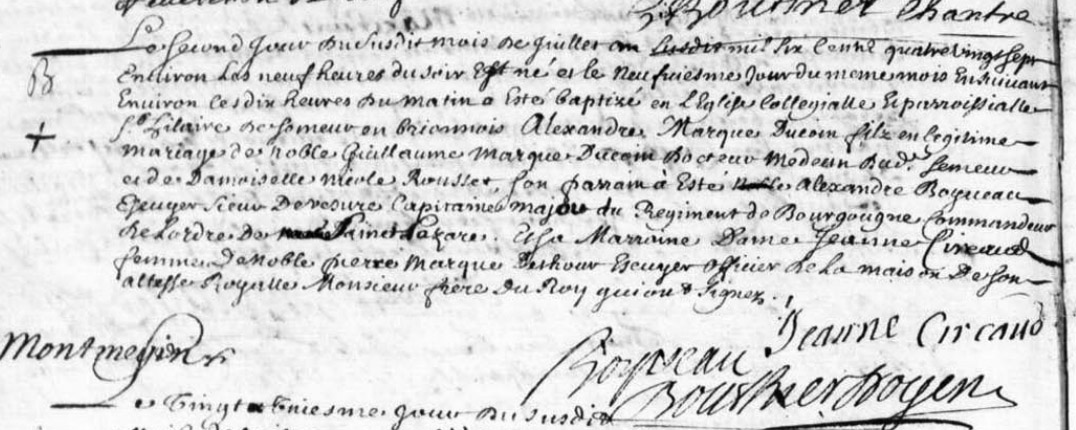 Chantre
Le second jour du susdit mois de juillet an susdit mil six cennt quatre vingt sept
B
Environ les neuf heures du soir Est né et le neufviesme jour du meme mois Ensuivant
Environ les dix heures du matin a esté baptizé en L'Eglise Collegialle Et parroissialle
+
St Hilaire de semeur en brionnois Alexandre Marque Ducoin filz en legitime
mariage de noble Guillaume Marque Ducoin Docteur Medecin Dud Semeur
et de Damoiselle nicole Rousset, son parrain à Esté Alexandre Boyveau
Escuyer sieur De Capitaine Major du Regiment de Bourgougne Commandeur
De Lordre De Sainct Lazare. Et sa Marraine Dame Jeanne Circaud
femme De Noble pierre Marque Escuyer officier De La maison De Son
altesse Royalle Monsieur frere du Roy qui ont signez.
Jeanne Circaud
Montmessin
Boyveau
Bouthier Doyen
Le Vingt huiesme jour du susdit